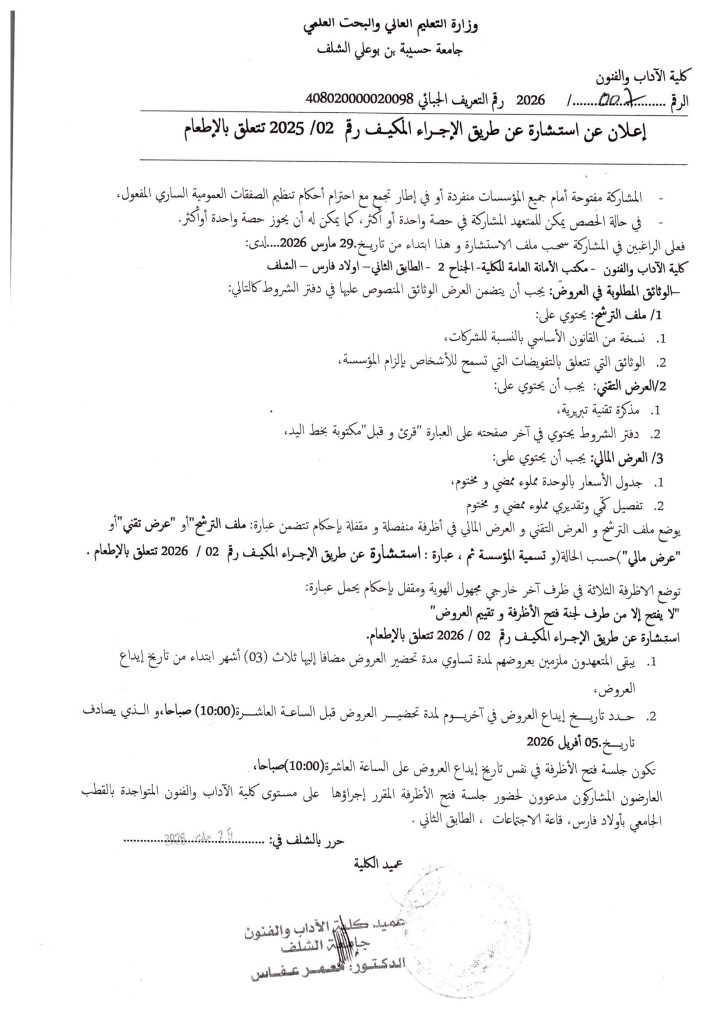 وزارة التعليم العالي والبحث العلمي
جامعة حسيبة بن بوعلي الشلف
كلية الآداب والفنون
الرقم ..........007......../ 2026 رقم التعريف الجبائي 408020000020098
إعلان عن استشارة عن طريق الإجراء المكيف رقم 02/ 2025 تتعلق بالإطعام
- المشاركة مفتوحة أمام جميع المؤسسات منفردة أو في إطار تجمع مع احترام أحكام تنظيم الصفقات العمومية الساري المفعول،
- في حالة الحصص يمكن للمتعهد المشاركة في حصة واحدة أو أكثر، كما يمكن له أن يحوز حصة واحدة أوأكثر.
فعلى الراغبين في المشاركة سحب ملف الاستشارة و هذا ابتداء من تاريخ.29 مارس 2026....لدى:
كلية الآداب والفنون - مكتب الأمانة العامة للكلية- الجناح 2 - الطابق الثاني– اولاد فارس – الشلف
–الوثائق المطلوبة في العروض: يجب أن يتضمن العرض الوثائق المنصوص عليها في دفتر الشروط كالتالي:
1/ ملف الترشح: يحتوي على:
1. نسخة من القانون الأساسي بالنسبة للشركات،
2. الوثائق التي تتعلق بالتفويضات التي تسمح للأشخاص بإلزام المؤسسة،
2/العرض التقني: يجب أن يحتوي على:
1. مذكرة تقنية تبريرية،
2. دفتر الشروط يحتوي في آخر صفحته على العبارة "قرئ و قبل"مكتوبة بخط اليد،
3/ العرض المالي: يجب أن يحتوي على:
1. جدول الأسعار بالوحدة مملوء ممضي و مختوم،
2. تفصيل كمّي وتقديري مملوء ممضي و مختوم
يوضع ملف الترشح و العرض التقني و العرض المالي في أظرفة منفصلة و مقفلة بإحكام تتضمن عبارة: ملف الترشح"أو "عرض تقني"أو
"عرض مالي")حسب الحالة(و تسمية المؤسسة ثم ، عبارة : استشارة عن طريق الإجراء المكيف رقم 02 / 2026 تتعلق بالإطعام .
توضع الاظرفة الثلاثة في ظرف آخر خارجي مجهول الهوية ومقفل بإحكام يحمل عبارة:
"لا يفتح إلا من طرف لجنة فتح الأظرفة و تقييم العروض"
استشارة عن طريق الإجراء المكيف رقم 02 / 2026 تتعلق بالإطعام.
1. يبقى المتعهدون ملزمين بعروضهم لمدة تساوي مدة تحضير العروض مضافا إليها ثلاث (03) أشهر ابتداء من تاريخ إيداع
العروض،
2. حدد تاريخ إيداع العروض في آخريوم لمدة تحضير العروض قبل الساعة العاشرة(10:00) صباحا،و الذي يصادف
تاريخ.05 أفريل 2026
تكون جلسة فتح الأظرفة في نفس تاريخ إيداع العروض على الساعة العاشرة(10:00)صباحا،
العارضون المشاركون مدعوون لحضور جلسة فتح الأظرفة المقرر إجراؤها على مستوى كلية الآداب والفنون المتواجدة بالقطب
الجامعي بأولاد فارس، قاعة الاجتماعات ، الطابق الثاني .
حرر بالشلف في: ........29 مارس 2026........
عميد الكلية
عميد كلية الآداب والفنون
جامعة الشلف
الدكتور: معمر عفاس